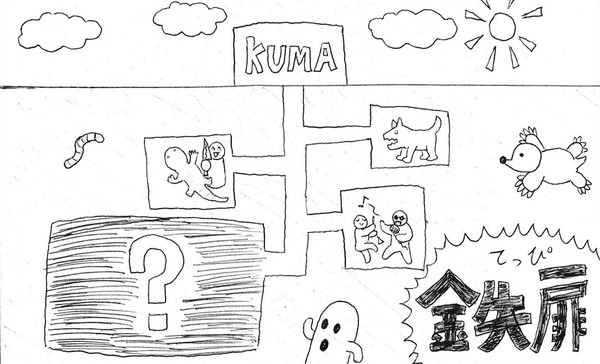 KUMA
?
てっぴ
鉄扉